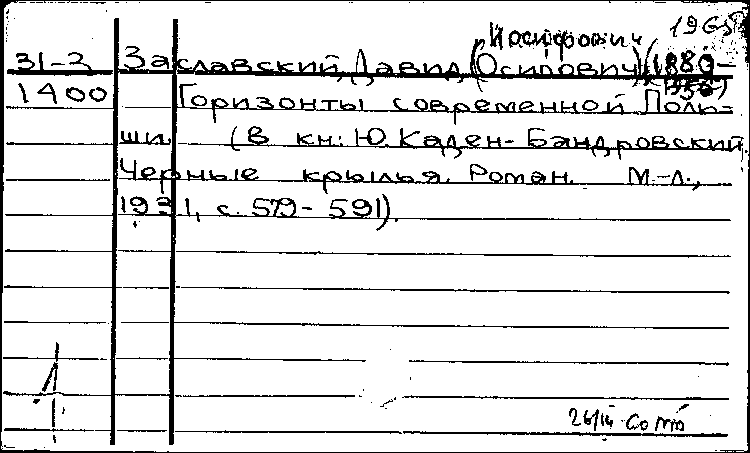 Иосифович 1965
31-2 Заславский, Давид (Осипович) (1880-
1400 Горизонты современной Поль-
ши. (В кн: Ю. Каден-Бандровский.
Черные крылья. Роман. М.-Л.,
1931, с. 579-591).